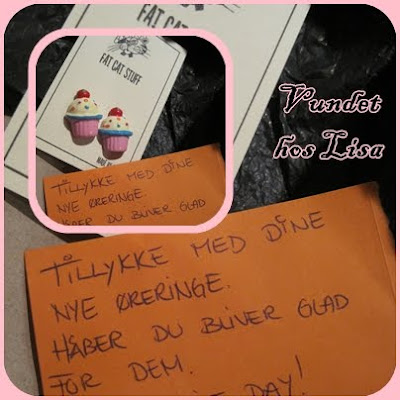 FAT CAT STUFF
FAT CAT STUFF
Vundet
hos Lisa
TILLYKKE MED DINE
NYE ØRERINGE.
HÅBER DU BLIVER GLAD
TILLYKKE MED DINE
NYE ØRERINGE.
HÅBER DU BLIVER GLAD
FOR DEM.
DAY!